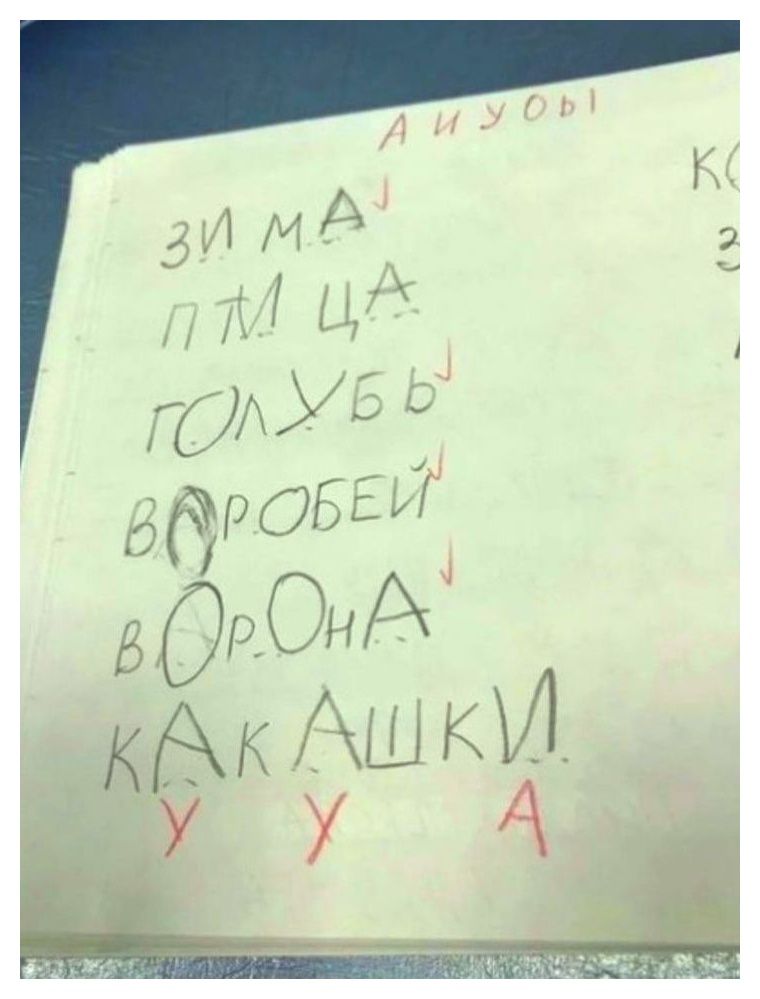 А И У О Ы
ЗИМА
ПТИЦА
ГОЛУБЬ
ВОРОБЕЙ
ВОРОНА
КАКАШКИ
У У А